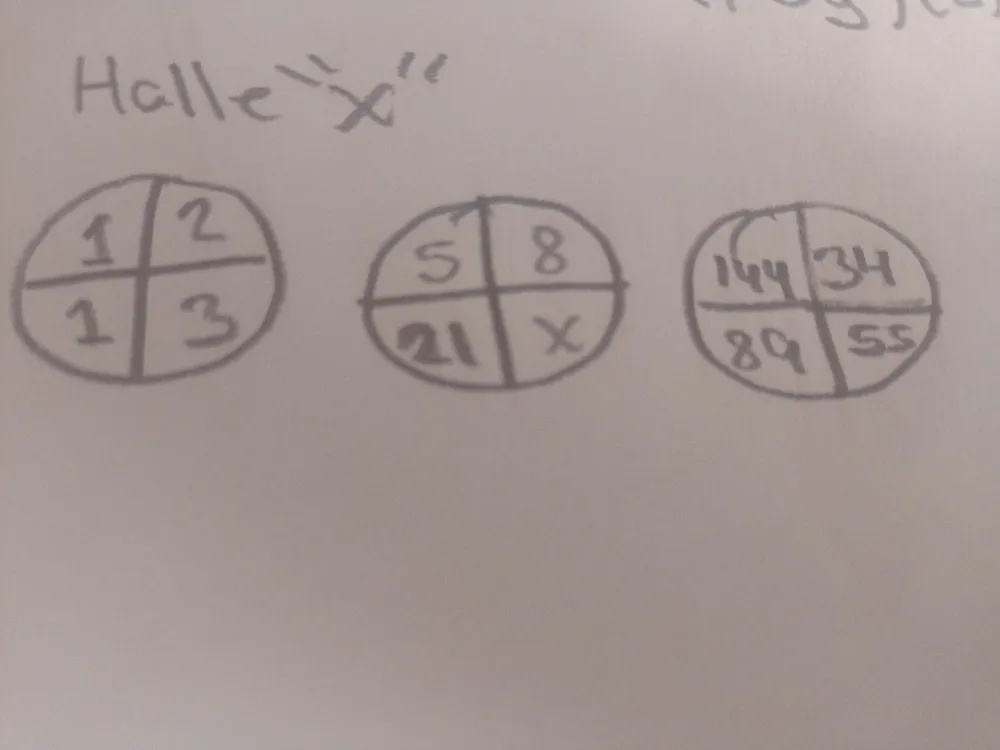 Halle "x"
1 2 5 8 144 34
1 3 21 x 89 55